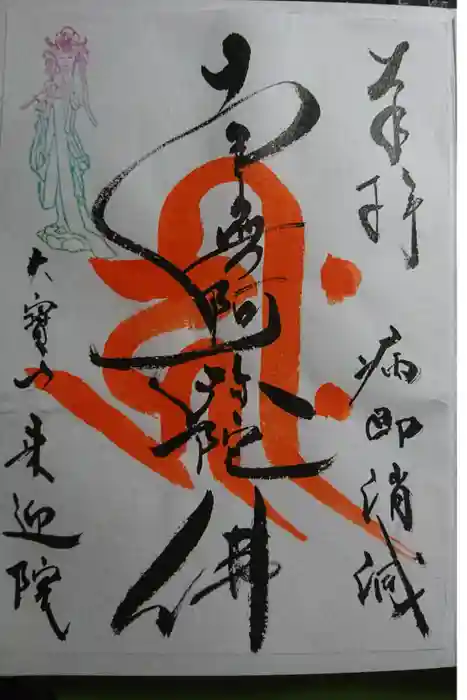 奉拝　病即消滅
南無阿弥陀佛
大寶山来迎院